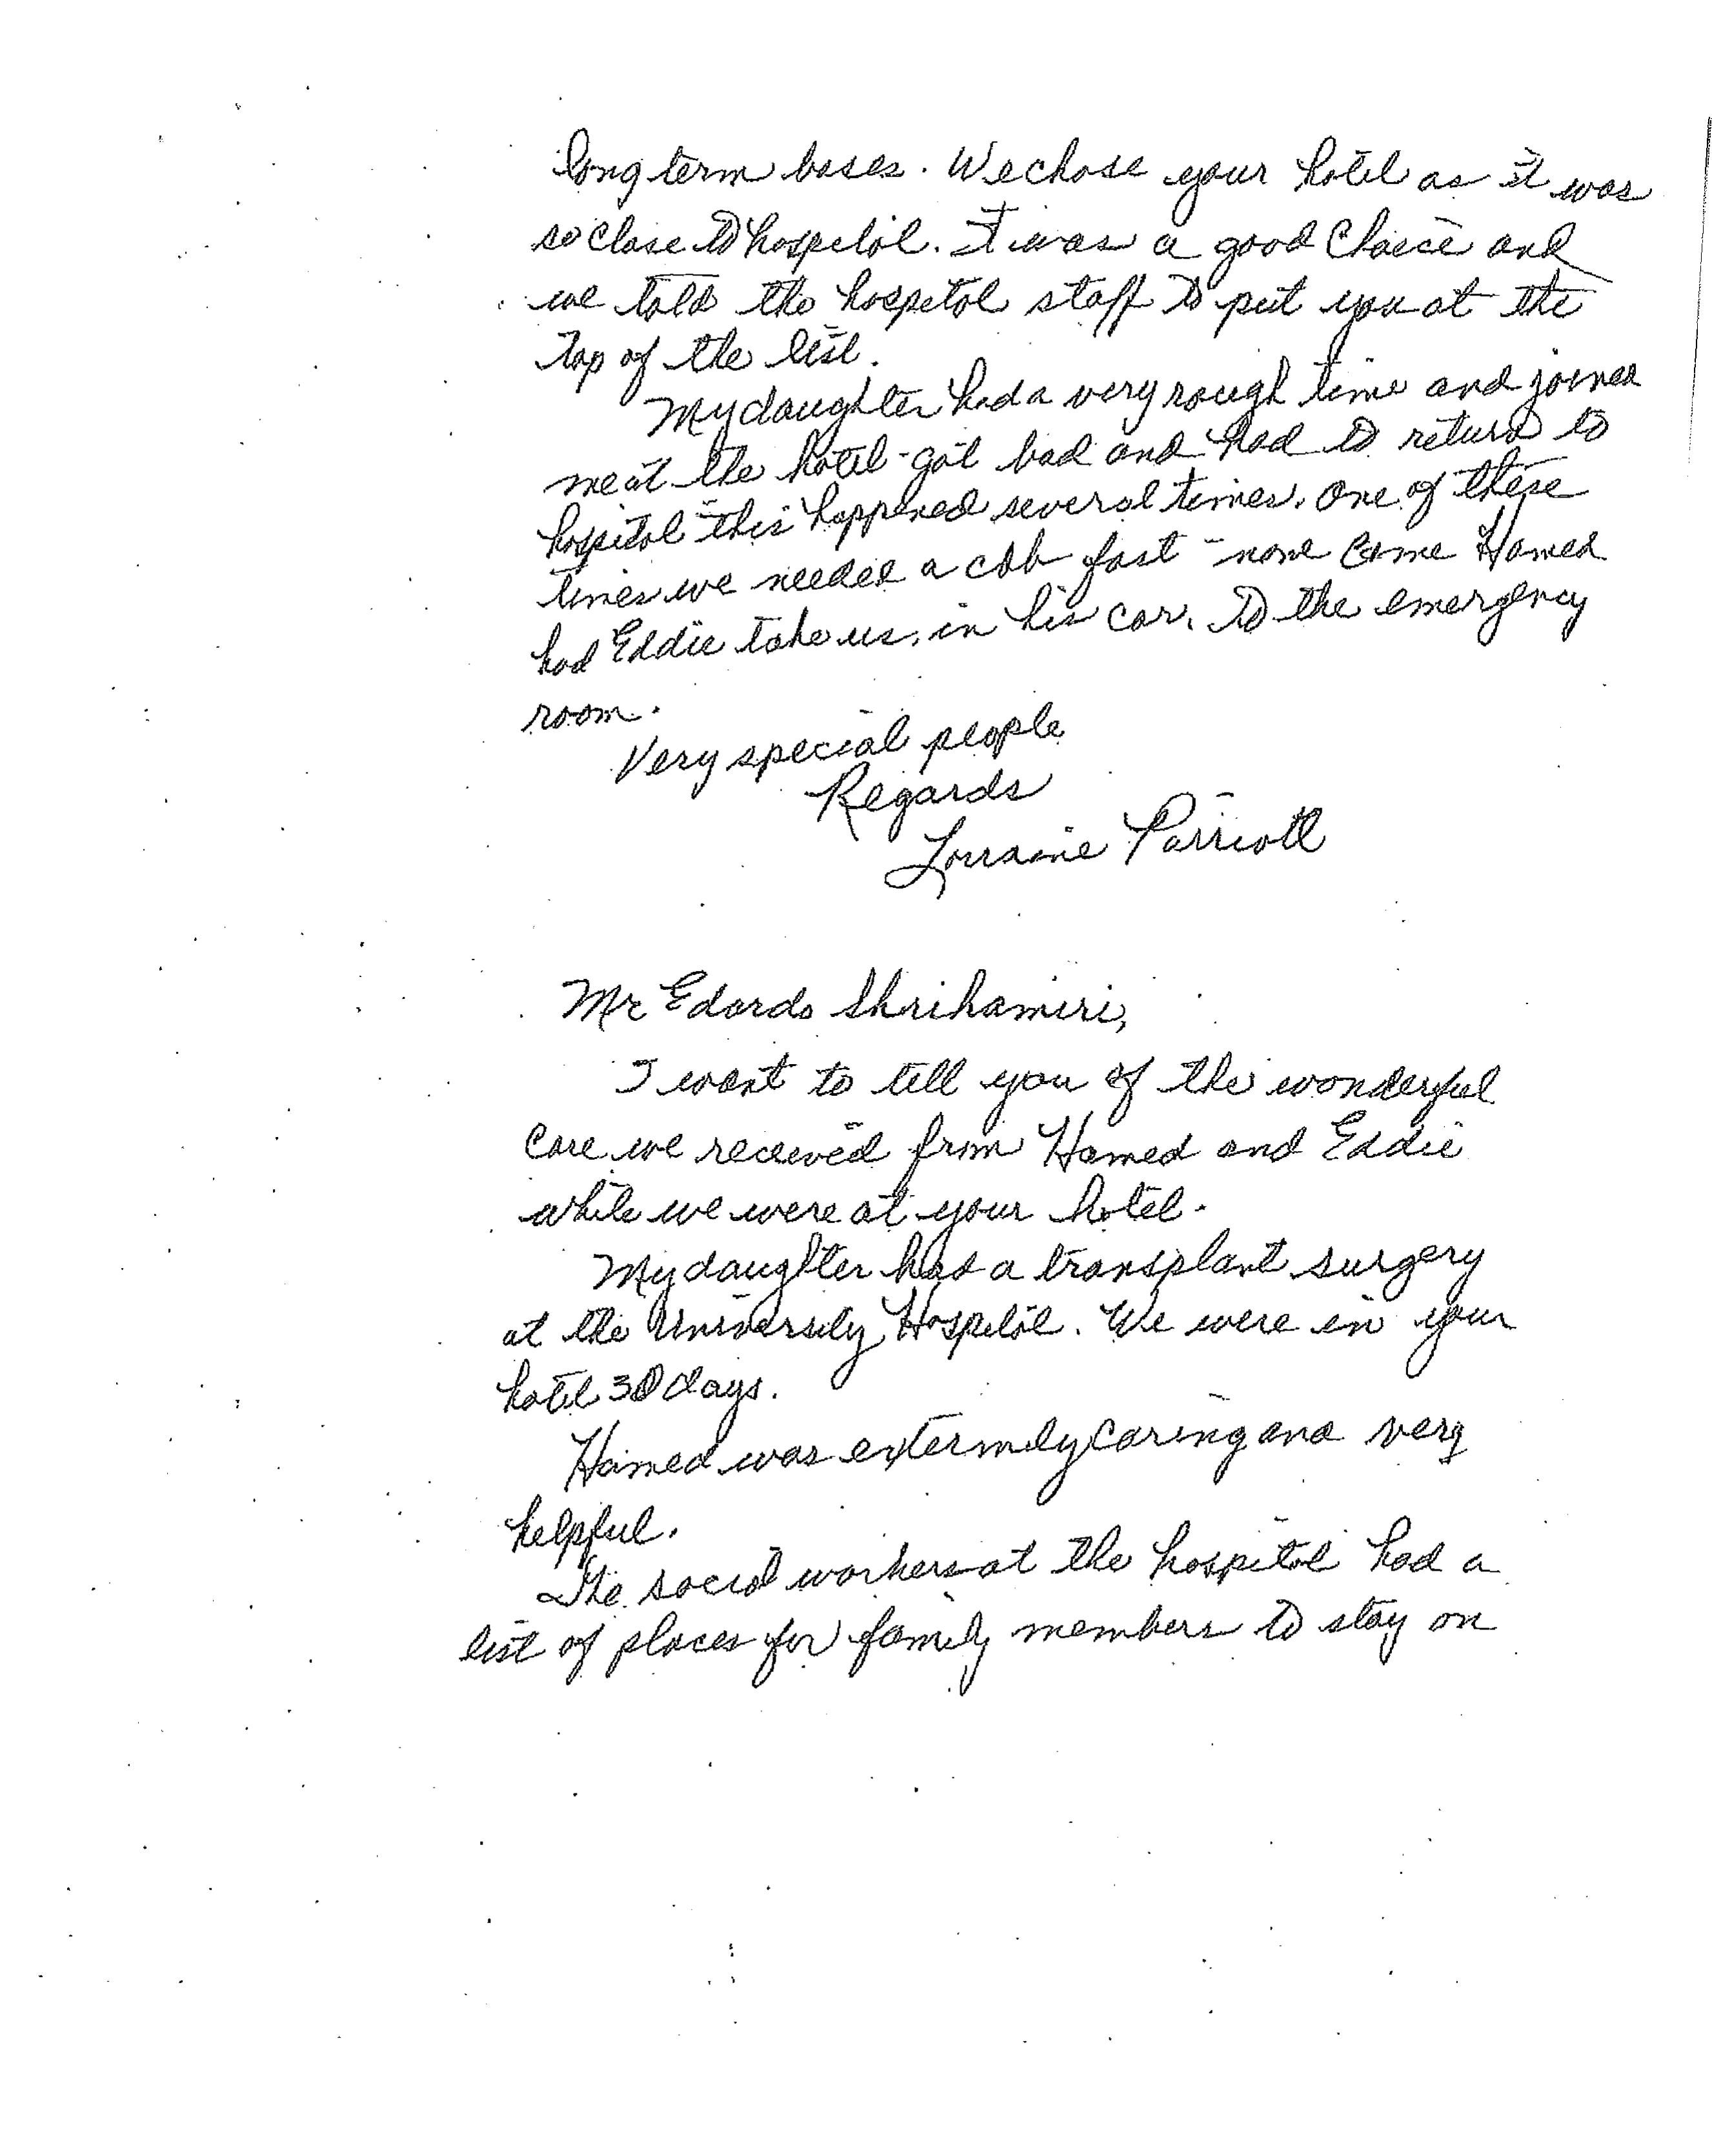 long term bases. We chose your hotel as it was
so close to hospital. It was a good choice and
we told the hospital staff to put you at the
top of the list.
My daughter had a very rough time and joined
me at the hotel - got bad and had to return to
hospital - this happened several times. One of these
times we needed a cab fast - none came Hamed
had Eddie take us, in his car, to the emergency
room.
Very special people
Regards
Lorraine Parriott
Mr Edardo Shrihamiri,
I want to tell you of the wonderful
care we received from Hamed and Eddie
while we were at your hotel.
My daughter had a transplant surgery
at the University Hospital. We were in your
hotel 30 days.
Hamed was extermely caring and very
helpful.
The social workers at the hospital had a
list of places for family members to stay on